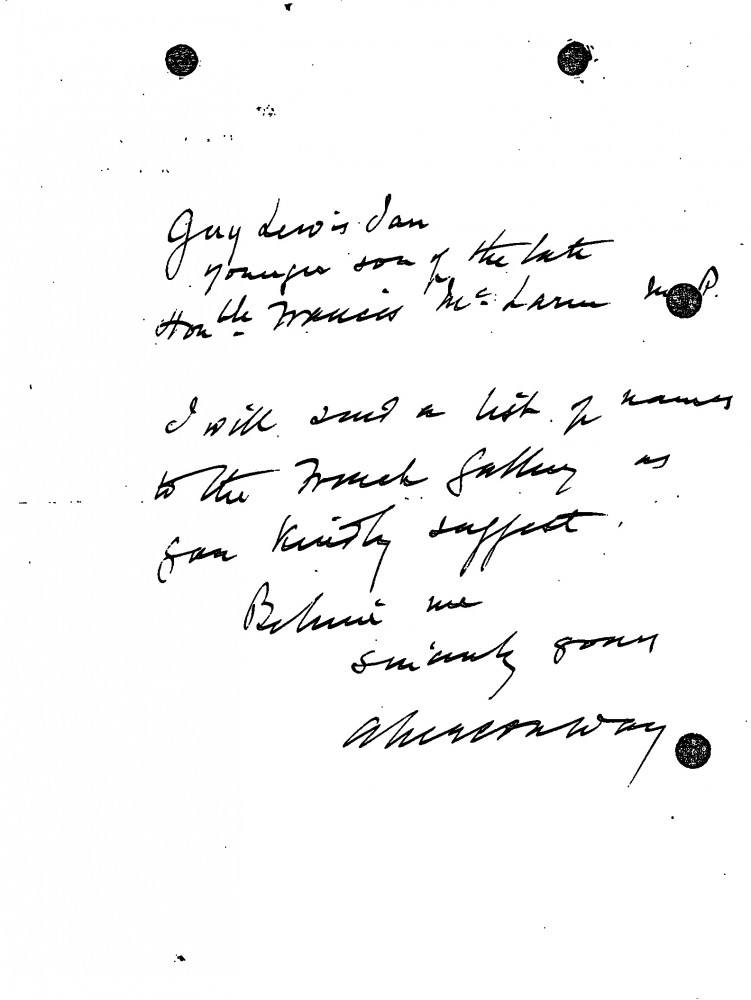 Guy Lewis Ian
younger son of the late
Honble Francis McLaren M.P.
I will send a list of names
to the French Gallery as
you kindly suggest.
Believe me
sincerely yours
Aberconway